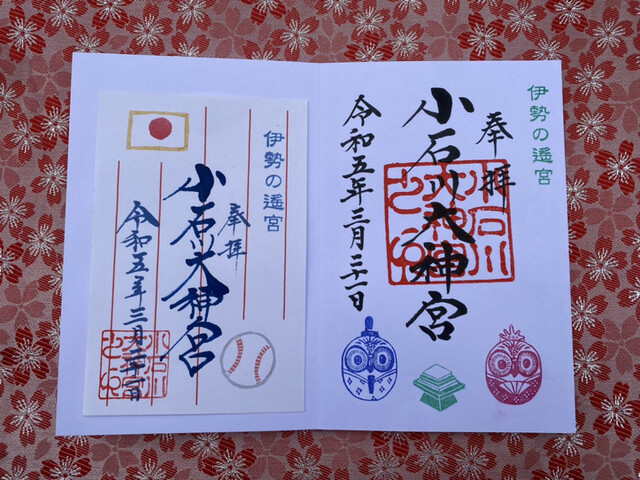 伊勢の遙宮
奉拝
小石川大神宮
令和五年三月二十一日
伊勢の遙宮
奉拝
小石川大神宮
令和五年三月